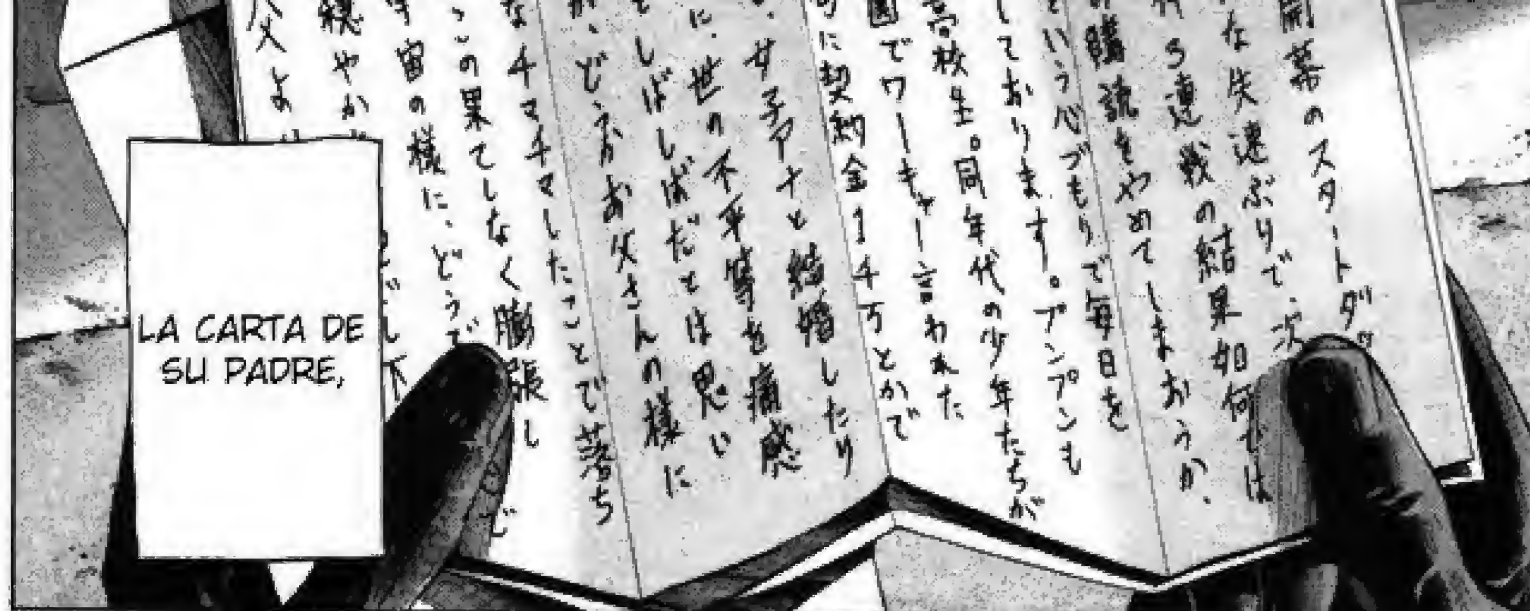 開幕のスタートダッ
な失速ぶりで、次
3連戦の結果如何では
購読をやめてしまおうか、
という心づもりで毎日を
しております。プンプンも
高校生。同年代の少年たちが
園でワーキャー言われた
に契約金1千万とかで
女子アナと結婚したり
に、世の不平等を痛感
しばしばだとは思い
が、どうかお父さんの様に
なチマチマしたことで落ち
この果てしなく膨張し
宇宙の様に、どうで
穏やか
父より
LA CARTA DE
SU PADRE,